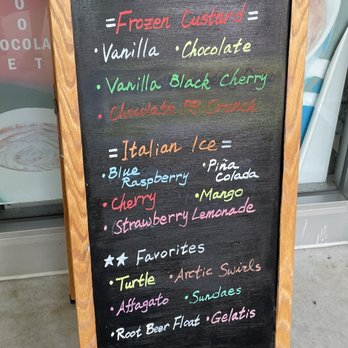 O O
CHOCOLA
E T
= Frozen Custard =
• Vanilla • Chocolate
• Vanilla Black Cherry
• Chocolate PB Crunch
= Italian Ice =
• Blue Raspberry • Piña Colada
• Cherry • Mango
• Strawberry Lemonade
★★ Favorites
• Turtle • Arctic Swirls
• Affagato • Sundaes
• Root Beer Float • Gelatis